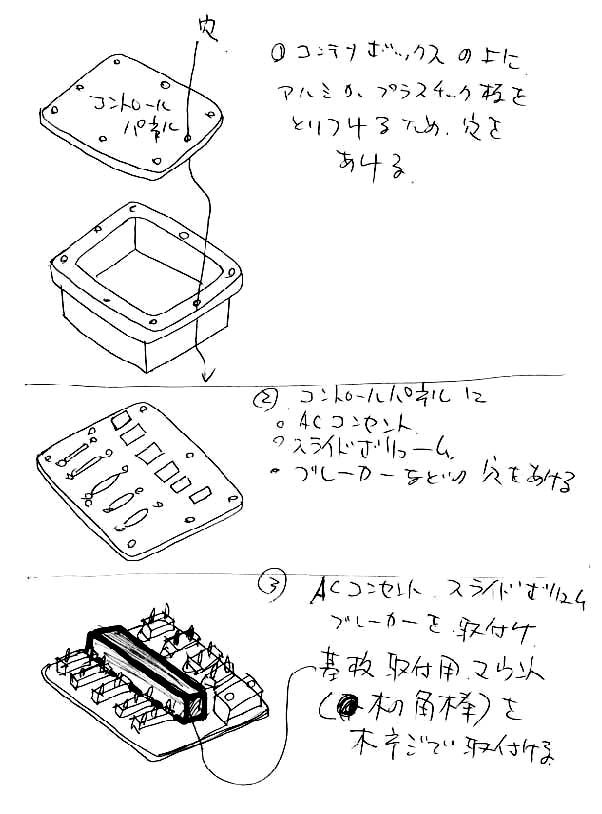 穴
コントロール
パネル
① コンテナボックスの上に
アルミか、プラスチック板を
とりつけるため、穴を
あける
② コントロールパネルに
○ ACコンセント
○ スライドボリューム
● ブレーカーなどの穴をあける
③ ACコンセント、スライドボリューム
ブレーカーを取付け
基板取付用マウント
(木の角棒)を
木ネジで取付ける